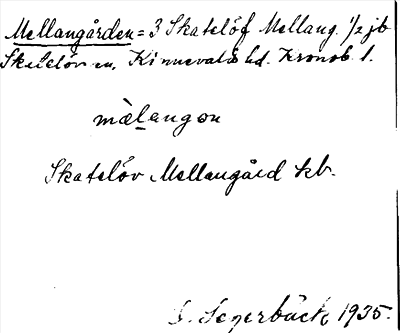 Mellangården = 3 Skatelöf Mellang. 1/2 jb
Skatelöv sn, Kinnevalds hd. Kronob. l.
mälangon
Skatelöv Mellangård kb.
G. Segerbäck 1935.